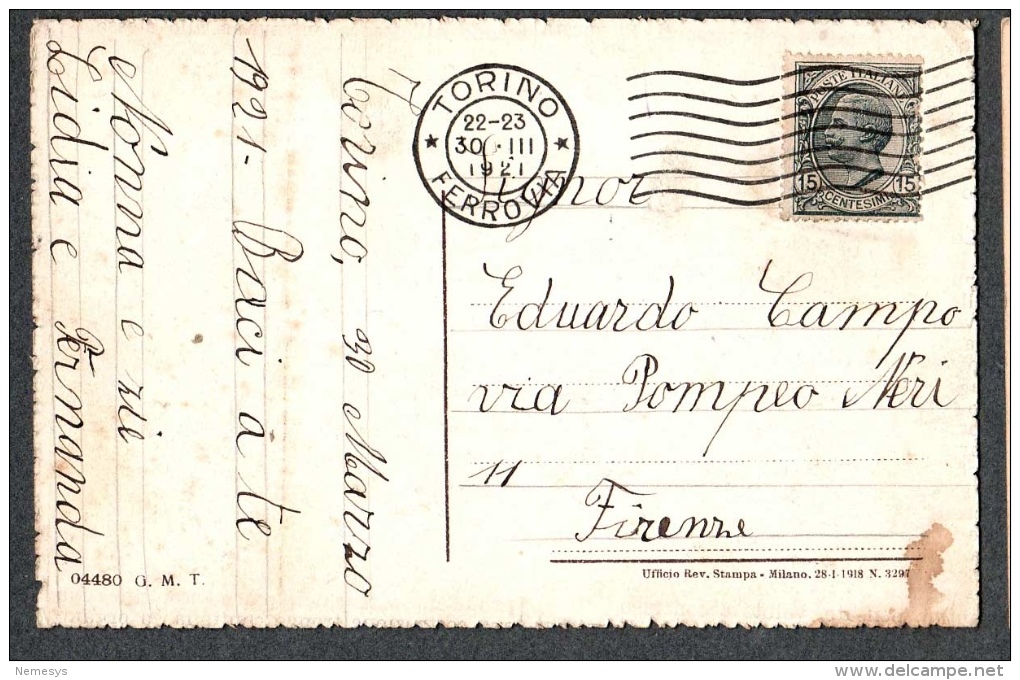 Torino, 30 Marzo
1921 - Baci a te
Nonna e zie
Lidia e Fernanda
TORINO
22-23
30·III
1921
FERROVIA
POSTE ITALIANE
15 15
CENTESIMI
Signor
Eduardo Campo
via Pompeo Neri
11
Firenze
04480 G. M. T.
Ufficio Rev. Stampa - Milano, 28-1-1918 N. 3297
Nemesys
www.delcampe.net